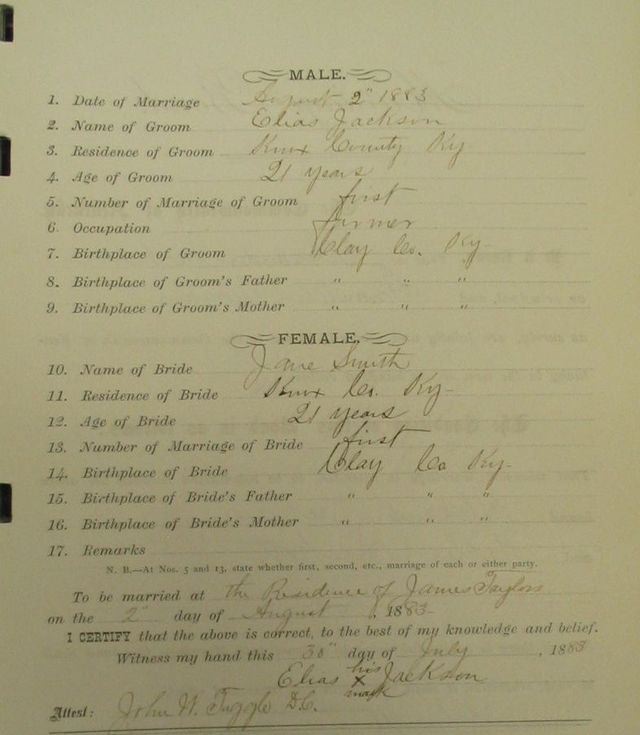 MALE.
1. Date of Marriage August 2" 1883
2. Name of Groom Elias Jackson
3. Residence of Groom Knox County Ky
4. Age of Groom 21 years
5. Number of Marriage of Groom first
6. Occupation farmer
7. Birthplace of Groom Clay Co. Ky
8. Birthplace of Groom's Father " " "
9. Birthplace of Groom's Mother " " "
FEMALE.
10. Name of Bride Jane Smith
11. Residence of Bride Knox Co. Ky-
12. Age of Bride 21 years
13. Number of Marriage of Bride first
14. Birthplace of Bride Clay Co Ky-
15. Birthplace of Bride's Father " " "
16. Birthplace of Bride's Mother " " "
17. Remarks
N. B.—At Nos. 5 and 13, state whether first, second, etc., marriage of each or either party.
To be married at the Residence of James Taylors
on the 2" day of August, 1883
I CERTIFY that the above is correct, to the best of my knowledge and belief.
Witness my hand this 30" day of July, 1883
Elias his x mark Jackson
Attest: John W. Tuggle D.C.